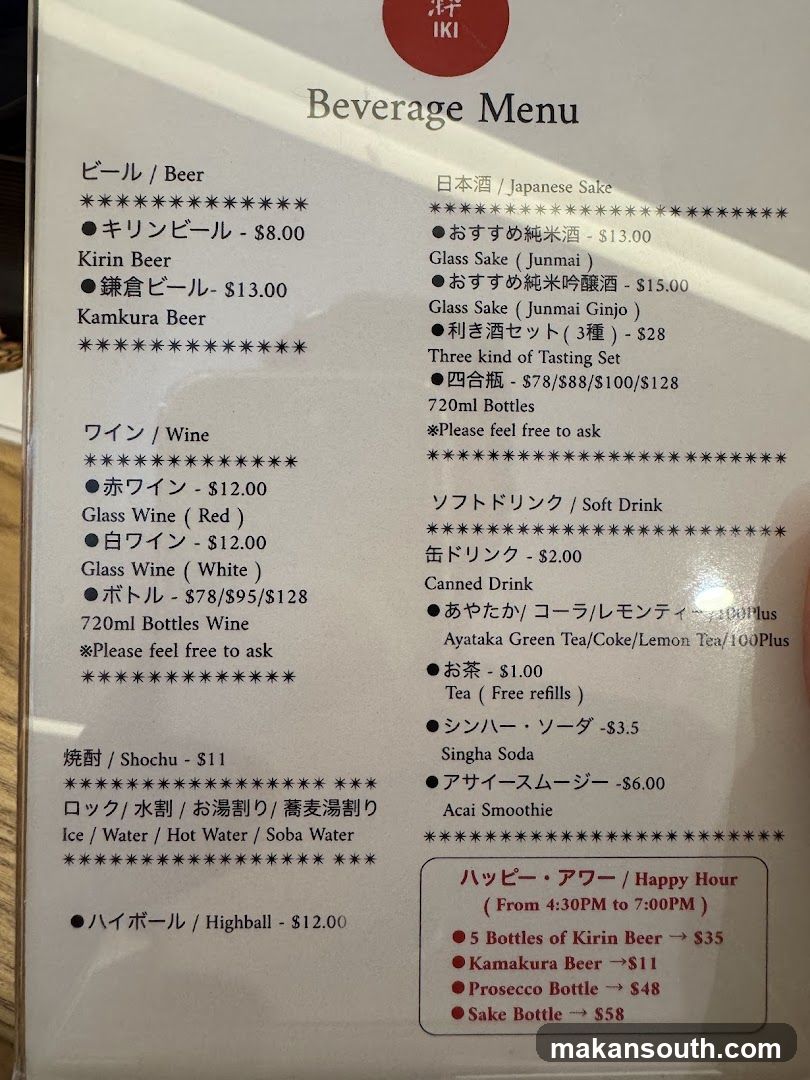 粋
IKI
Beverage Menu
ビール / Beer
*************
●キリンビール - $8.00
Kirin Beer
●鎌倉ビール- $13.00
Kamkura Beer
*************
ワイン / Wine
*************
●赤ワイン - $12.00
Glass Wine ( Red )
●白ワイン - $12.00
Glass Wine ( White )
●ボトル - $78/$95/$128
720ml Bottles Wine
※Please feel free to ask
*************
焼酎 / Shochu - $11
***************** ***
ロック/ 水割 / お湯割り/ 蕎麦湯割り
Ice / Water / Hot Water / Soba Water
***************** ***
●ハイボール / Highball - $12.00
日本酒 / Japanese Sake
***********************
●おすすめ純米酒 - $13.00
Glass Sake ( Junmai )
●おすすめ純米吟醸酒 - $15.00
Glass Sake ( Junmai Ginjo )
●利き酒セット( 3種 ) - $28
Three kind of Tasting Set
●四合瓶 - $78/$88/$100/$128
720ml Bottles
※Please feel free to ask
***********************
ソフトドリンク / Soft Drink
***********************
缶ドリンク - $2.00
Canned Drink
●あやたか/ コーラ/レモンティー /100Plus
Ayataka Green Tea/Coke/Lemon Tea/100Plus
●お茶 - $1.00
Tea ( Free refills )
●シンハー・ソーダ -$3.5
Singha Soda
●アサイースムージー -$6.00
Acai Smoothie
***********************
ハッピー・アワー / Happy Hour
( From 4:30PM to 7:00PM )
●5 Bottles of Kirin Beer → $35
●Kamakura Beer →$11
●Prosecco Bottle → $48
●Sake Bottle → $58
makansouth.com